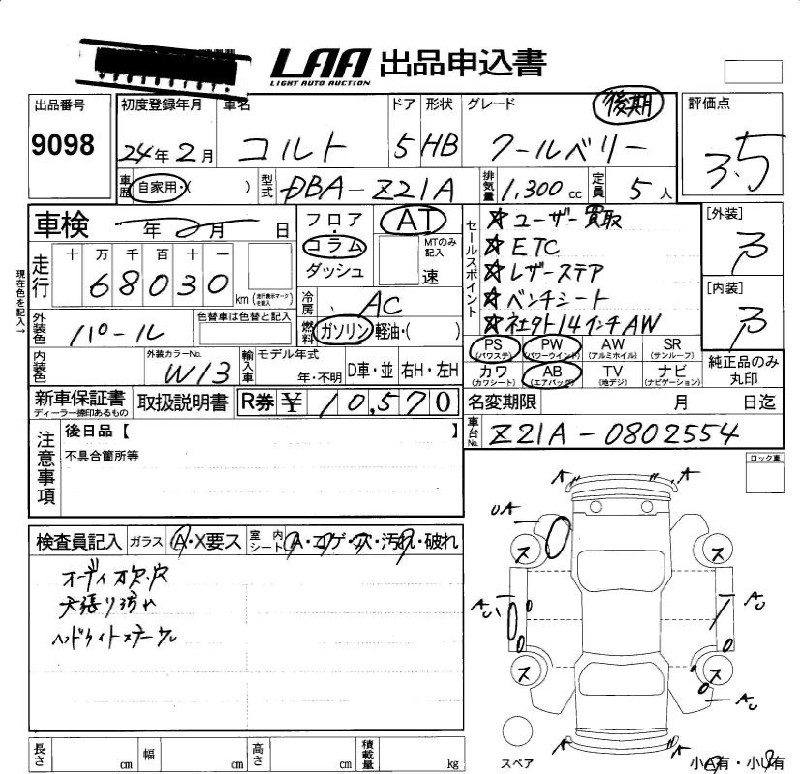 LAA 出品申込書
LIGHT AUTO AUCTION
出品番号 9098
初度登録年月 24年2月
車名 コルト
ドア 5
形状 HB
グレード クールベリー 後期
評価点 3.5
車歴 自家用・( )
型式 DBA-Z21A
排気量 1,300cc
定員 5人
車検 年 月 日
フロア
コラム
ダッシュ
AT
MTのみ記入
速
セールスポイント
☆ユーザー買取
☆ETC
☆レザーステア
☆ベンチシート
☆社外14インチAW
[外装] 3
[内装] 3
現在色を記入→
走行 十 万 千 百 十 一
68030 km (走行表示マークを記入)
冷房 AC
燃料 ガソリン 軽油・( )
外装色 パール
色替車は色替と記入
内装色
外装カラーNo. W13
輸入車 モデル年式 年・不明 D車・並 右H・左H
PS (パワステ) PW (パワーウインド) AW (アルミホイル) SR (サンルーフ)
カワ (カワシート) AB (エアバック) TV (地デジ) ナビ (ナビゲーション)
純正品のみ丸印
新車保証書 ディーラー捺印あるもの
取扱説明書
R券 ¥ 10,570
名変期限 月 日迄
車台No. Z21A-0802554
注意事項
後日品【 】
不具合箇所等
ロック車
検査員記入 ガラス A・X要ス 室内シート A・コゲ・穴・汚れ・破れ
オーディオ欠、穴
天張り汚れ
ヘッドライトステーワレ
A A
UA
ス ス
AU AU
ス ス
AU
A A
スペア
小A有・小U有
長さ cm 幅 cm 高さ cm 積載量 kg